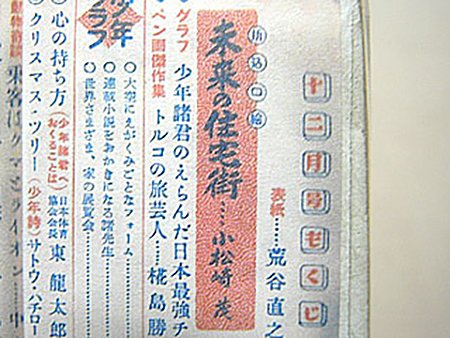 十二月号もくじ
表紙……荒谷直之
折込口絵
未来の住宅街……小松崎茂
グラフ 少年諸君のえらんだ日本最強チ
ペン画傑作集 トルコの旅芸人……椛島勝
少年グラフ
○大空にえがくみごとなフォーム
○連載小説をおかきになる諸先生
○世界さまざま、家の展覧会
◎心の持ち方（少年諸君へおくることば）日本体育協会会長 東龍太郎
◎クリスマス・ツリー（少年詩）サトウ・ハチロー